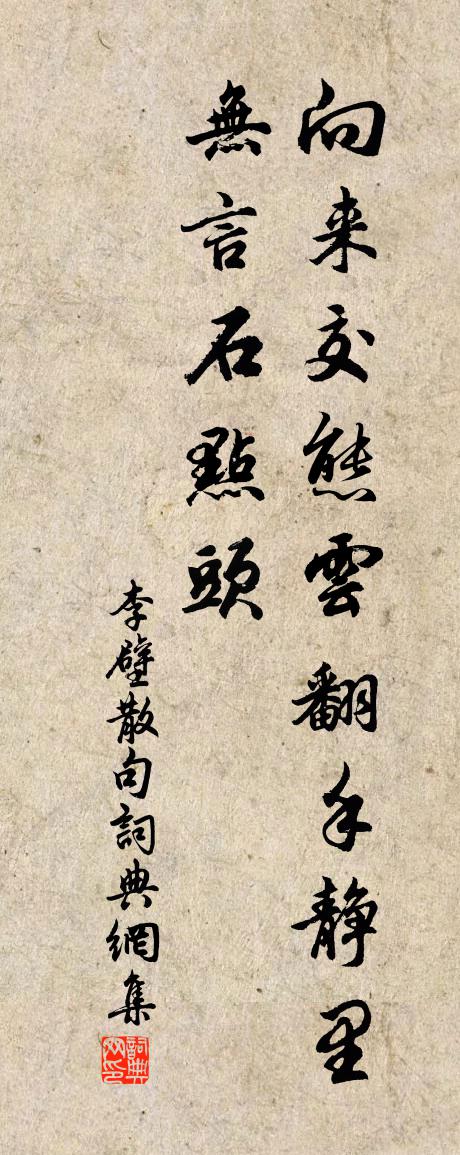 向来交態雲翻手静里
無言石點頭
李壁散句詞典網集
詞典網印